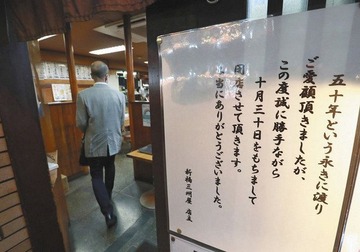 五十年という永きに渡り
ご愛顧頂きましたが、
この度誠に勝手ながら
十月三十日をもちまして
閉店させて頂きます。
本当にありがとうございました。
新橋三州屋 店主